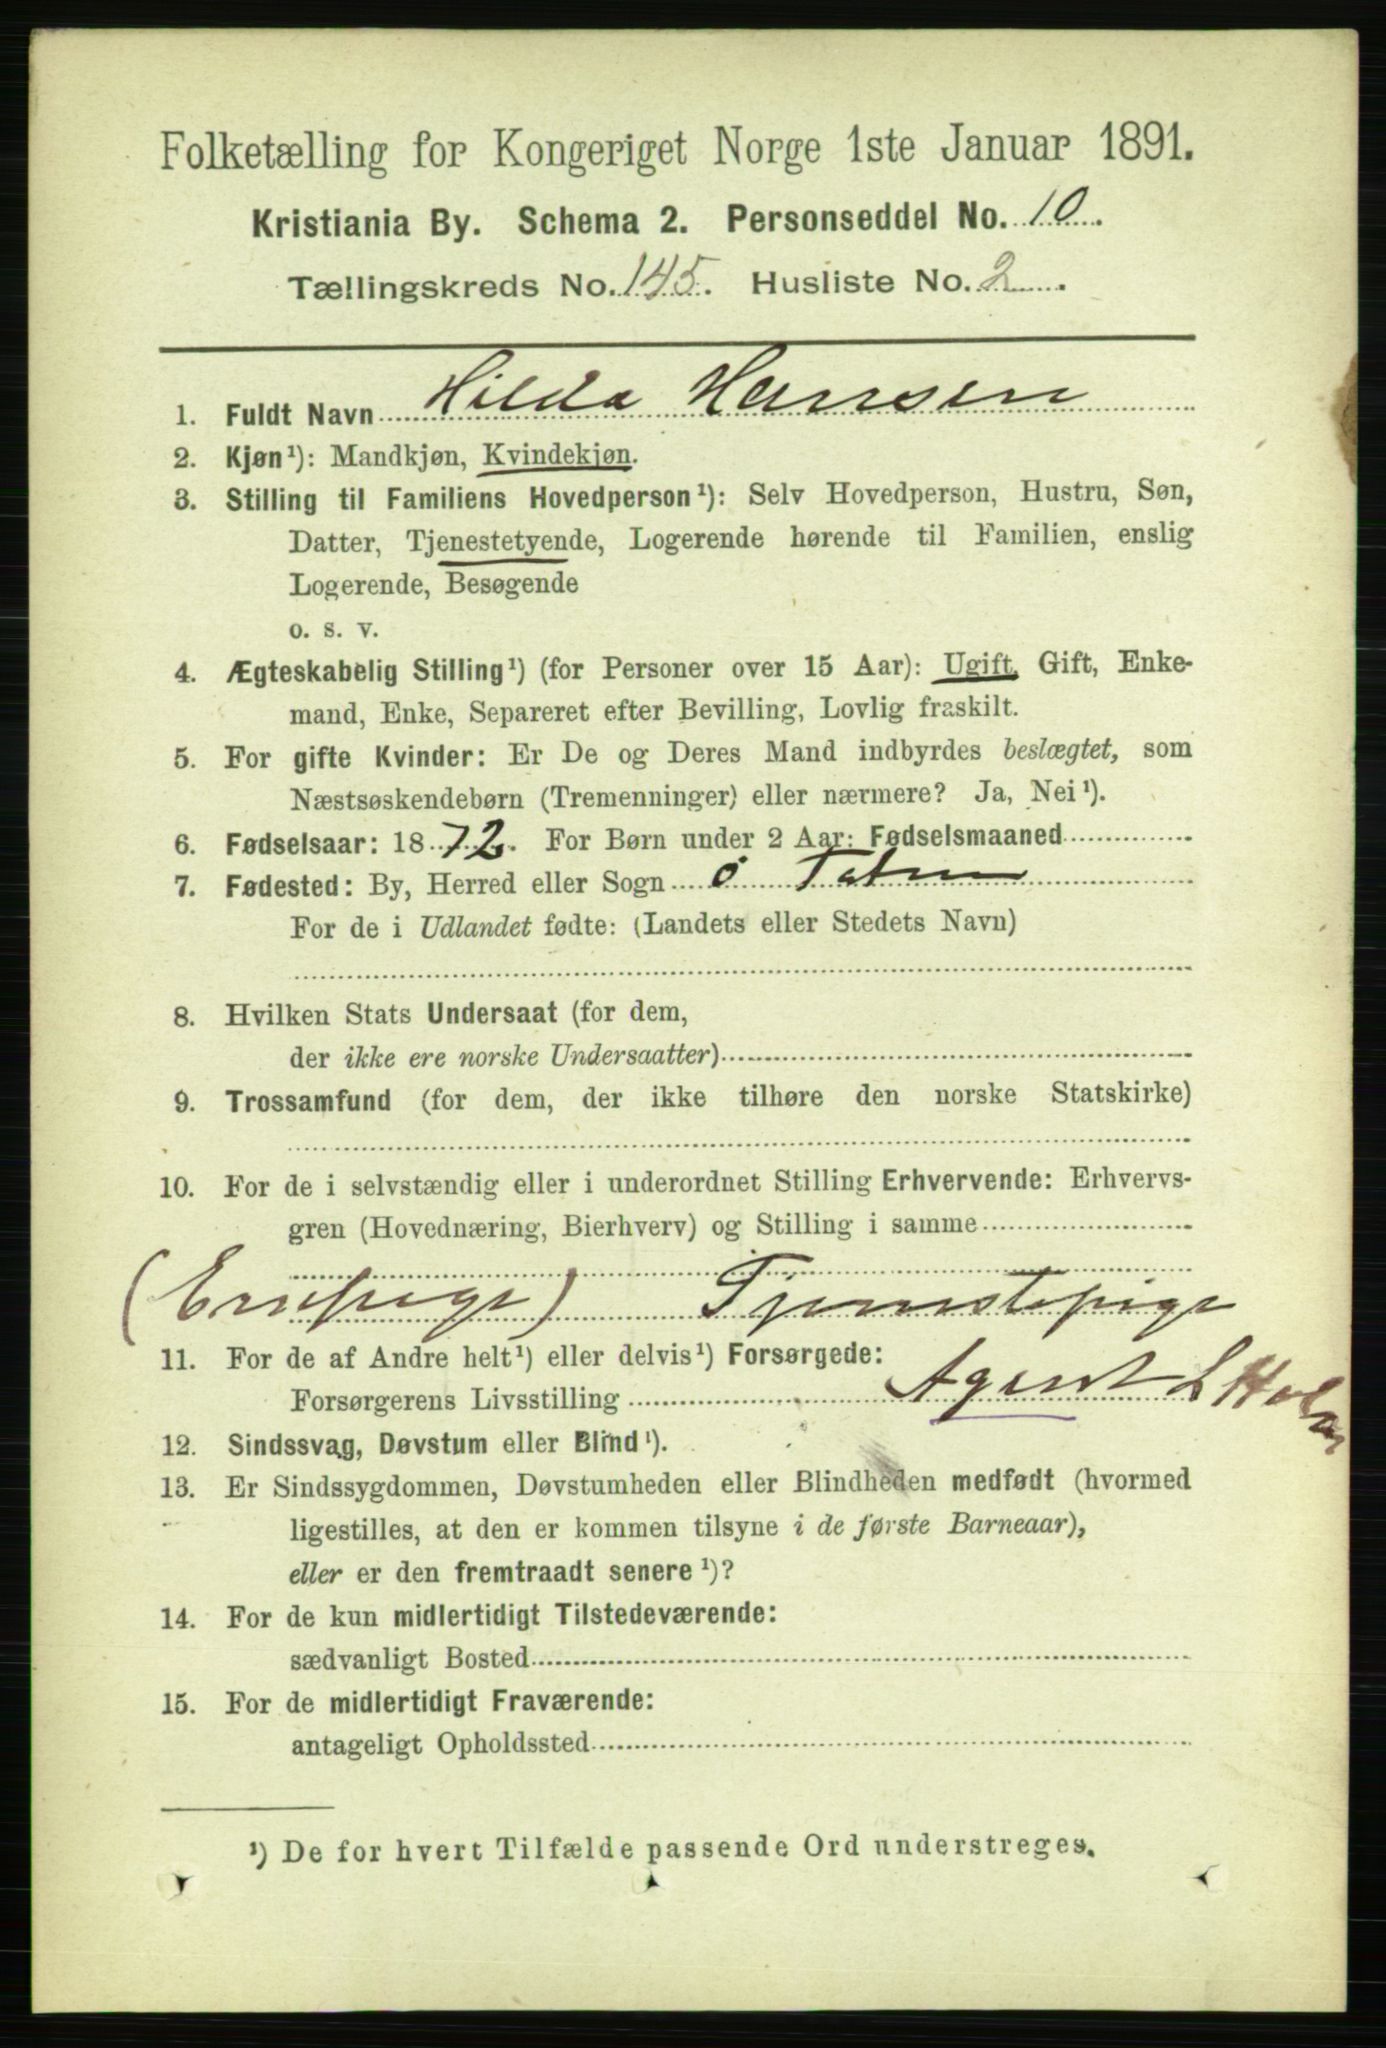 Folketælling for Kongeriget Norge 1ste Januar 1891.
Kristiania By. Schema 2. Personseddel No. 10.
Tællingskreds No. 145. Husliste No. 2.
1. Fuldt Navn Hilda Hansen
2. Kjøn¹): Mandkjøn, Kvindekjøn.
3. Stilling til Familiens Hovedperson¹): Selv Hovedperson, Hustru, Søn,
Datter, Tjenestetyende, Logerende hørende til Familien, enslig
Logerende, Besøgende
o. s. v.
4. Ægteskabelig Stilling¹) (for Personer over 15 Aar): Ugift, Gift, Enke-
mand, Enke, Separeret efter Bevilling, Lovlig fraskilt.
5. For gifte Kvinder: Er De og Deres Mand indbyrdes beslægtet, som
Næstsøskendebørn (Tremenninger) eller nærmere? Ja, Nei¹).
6. Fødselsaar: 1872. For Børn under 2 Aar: Fødselsmaaned
7. Fødested: By, Herred eller Sogn Ø Toten
For de i Udlandet fødte: (Landets eller Stedets Navn)
8. Hvilken Stats Undersaat (for dem,
der ikke ere norske Undersaatter)
9. Trossamfund (for dem, der ikke tilhøre den norske Statskirke)
10. For de i selvstændig eller i underordnet Stilling Erhvervende: Erhvervs-
gren (Hovednæring, Bierhverv) og Stilling i samme
(Enepige) Tjenestepige
11. For de af Andre helt¹) eller delvis¹) Forsørgede:
Forsørgerens Livsstilling Agent L
12. Sindssvag, Døvstum eller Blind¹).
13. Er Sindssygdommen, Døvstumheden eller Blindheden medfødt (hvormed
ligestilles, at den er kommen tilsyne i de første Barneaar),
eller er den fremtraadt senere¹)?
14. For de kun midlertidigt Tilstedeværende:
sædvanligt Bosted
15. For de midlertidigt Fraværende:
antageligt Opholdssted
¹) De for hvert Tilfælde passende Ord understreges.